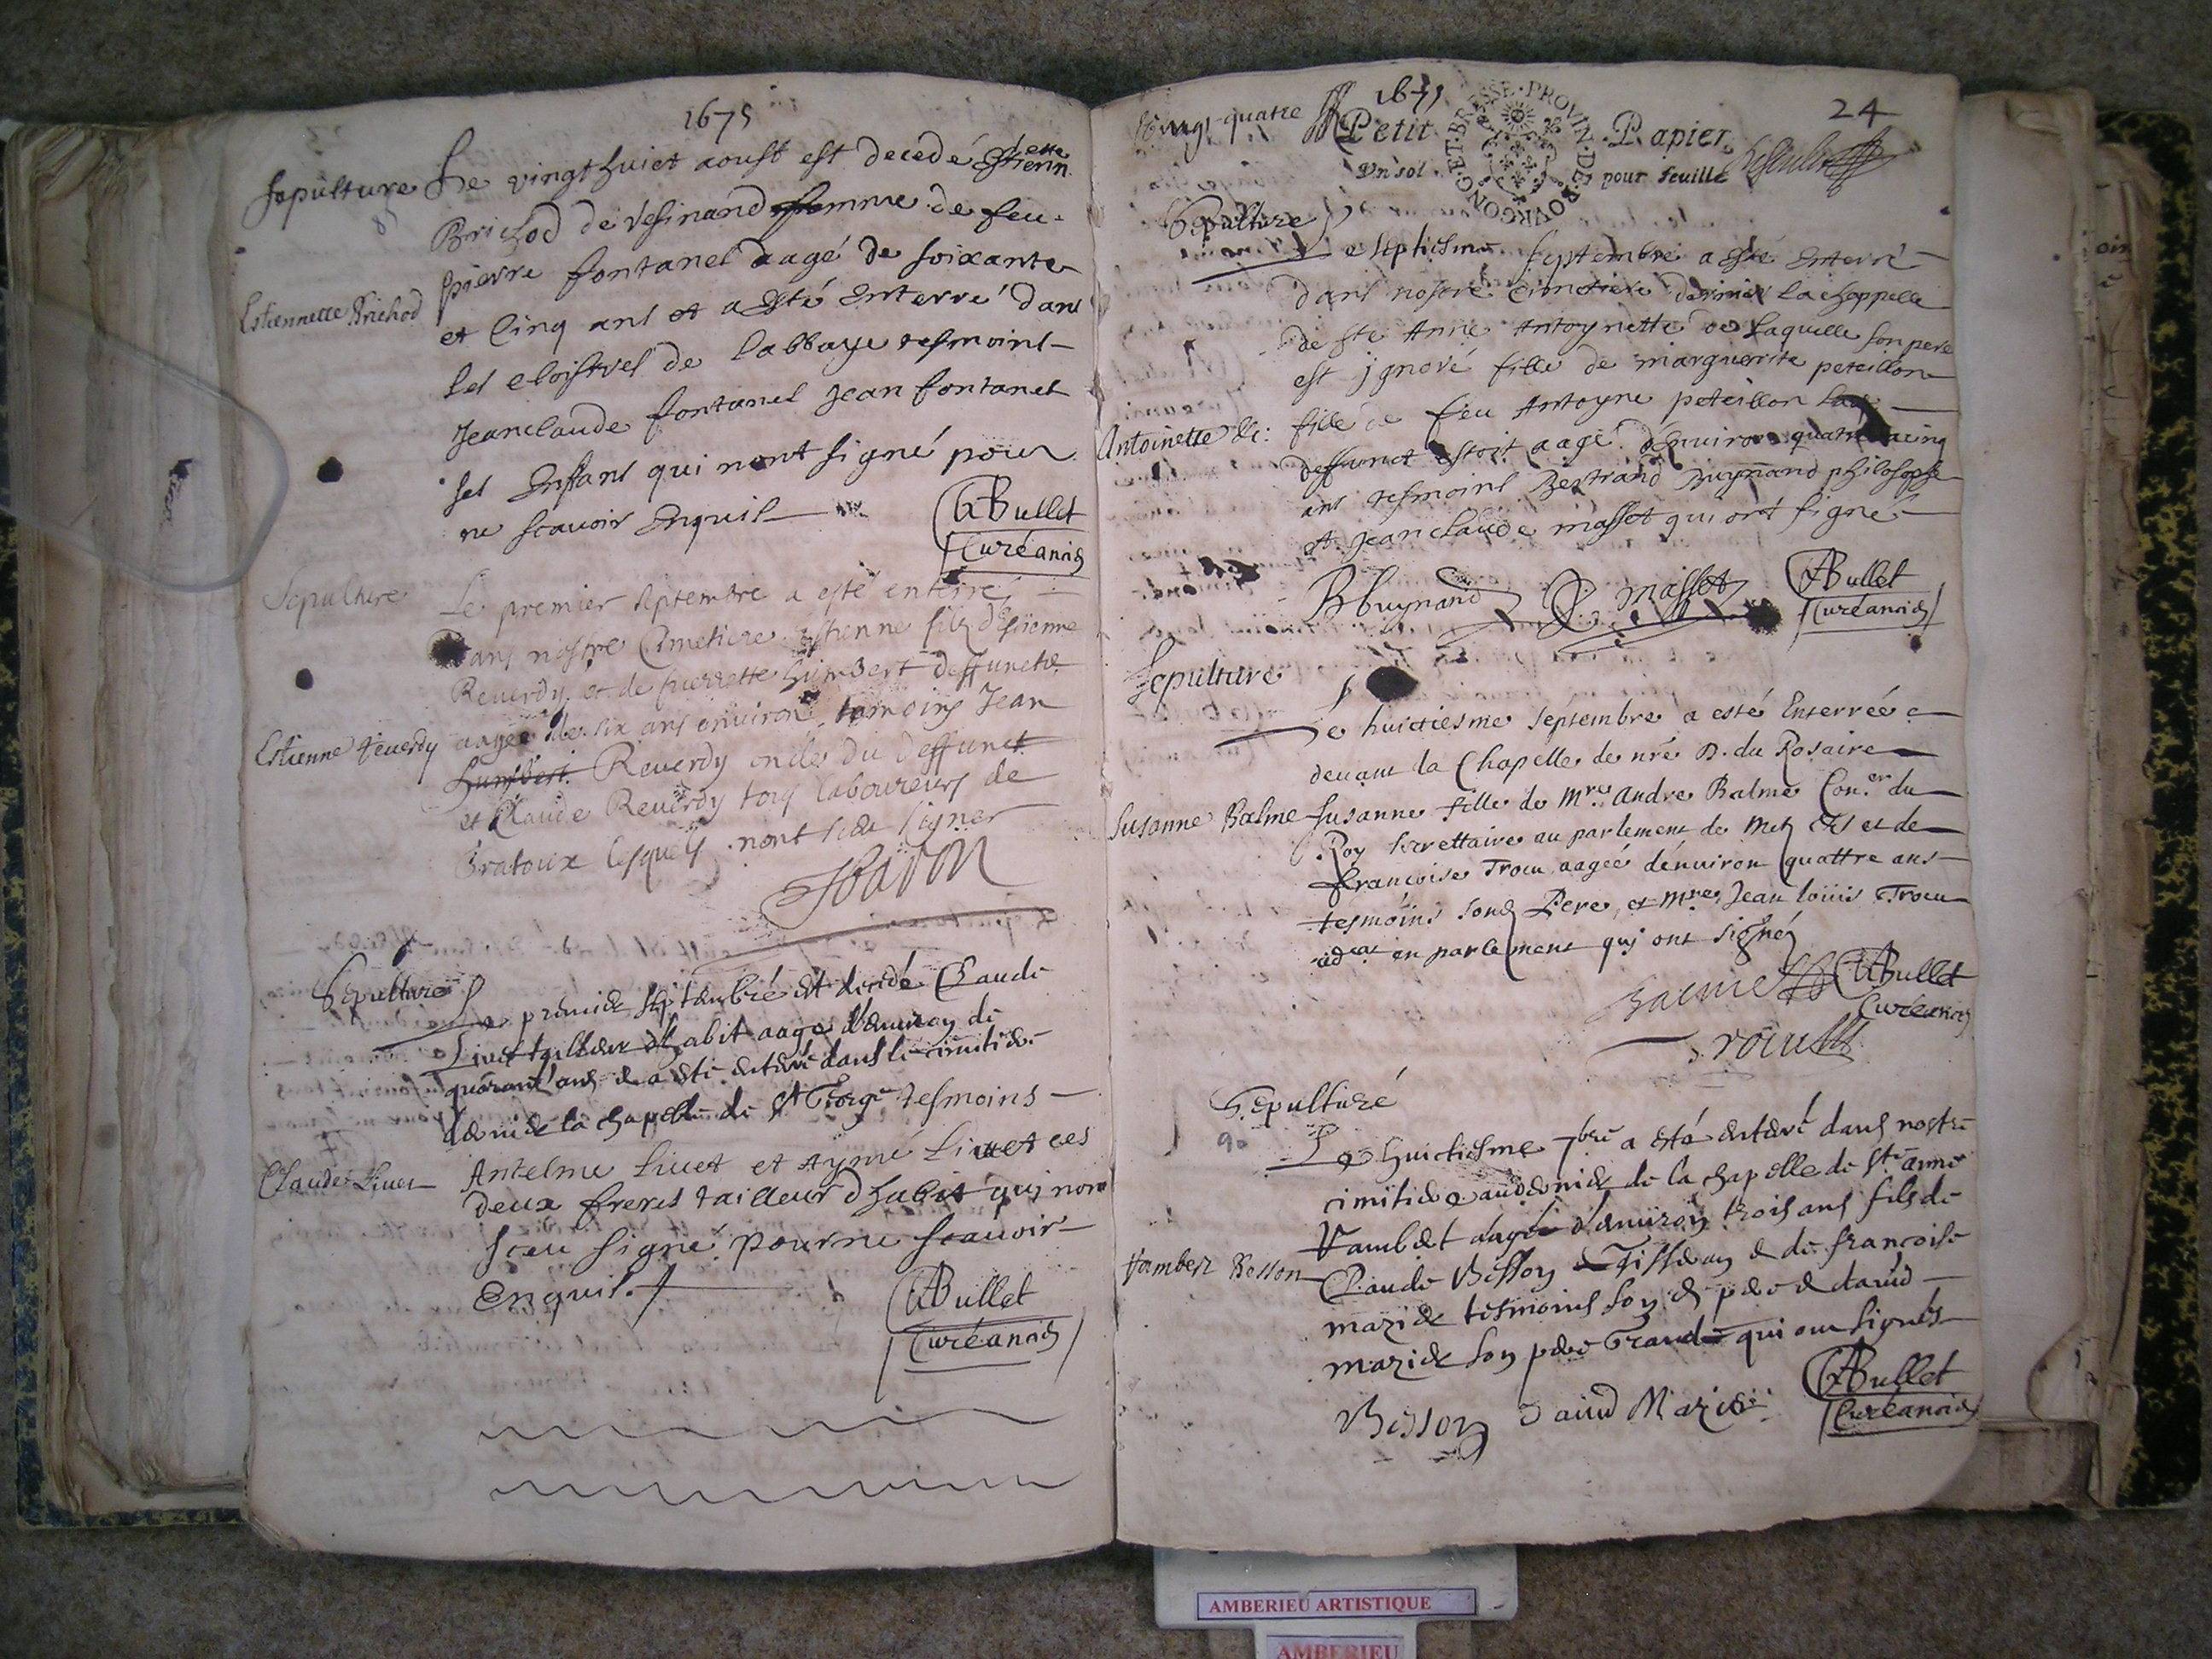 1675
Sepulture
Le vingt huict aoust est decedé Estienn
ette
Brichod de Vesinand femme de feu
Estiennette Brichod
pierre fontanel aagé de soixante
et cinq ans et a esté enterré dans
les cloistres de labbaye tesmoins
Jeanclaude fontanel Jean fontanel
ses enfans qui nont signé pour
ne scavoir enquis
Bullet
Curéanois
Sepulture
Le premier septembre a esté enterré
dans nostre Cimetiere Estienne filz destienne
Reverdy et de pierrette humbert deffuncte
Estienne Reverdy
aagée de six ans environ temoins Jean
humbert Reverdy oncle du deffunct
et Claude Reverdy tous laboureurs de
lesquels nont sceu signer
Sepulture
Le premier septembre est decedé Claude
Livet tailleur d'habit aagé d'environ de
quarant' ans et a esté enterré dans le cimitiere
derrier la chapelle de St George tesmoins
Claude Livet
Antelme Livet et Aymé Livet ses
deux freres tailleur d'habit qui nont
sceu signé pour ne scavoir
Enquis
Bullet
Curéanois
vingt quatre
1675
24
Petit Papier
Un sol pour feuille
BOVRGONG·ET·BRESSE·PROVIN·DE
Sepulture
Le septiesme septembre a esté enterré
dans nostre cimetiere derrier la chappelle
de ste Anne Antoynette de laquelle son pere
est jgnoré fille de marguerite peteillon
Antoinette &c:
fille de feu Antoyne peteillon
deffunct estoit aagé denviron quatre a cinq
ans tesmoins Bertrand Buynand philosophe
et Jeanclaude massot qui ont signé
BBuynand massot Bullet
Curéanois
Sepulture
Le huictiesme septembre a esté Enterrée
devant la Chapelle de nre D. du Rosaire
Susanne Balme
Susanne fille de Mre Andre Balme Con.er du
Roy secrettaire au parlement de Metz et de
francoise Trocu aageé d'environ quattre ans
tesmoins sond Pere, et Mre Jean Louis Trocu
adat en parlement quj ont signé
Balme Bullet
Curéanois
Trocu
Sepulturé
90
Le huictiesme 7bre a esté enterré dans nostre
cimitiere auderrier de la chapelle de Ste anne
Vambert aagé d'environ trois ans fils de
Vambert Besson
Claude Besson Tisseran et de francoise
marier tesmoins son d pere et david
marier son pere Grand qui ont signés
Besson David Marier
Bullet
Curéanois
AMBERIEU ARTISTIQUE
AMBERIEU